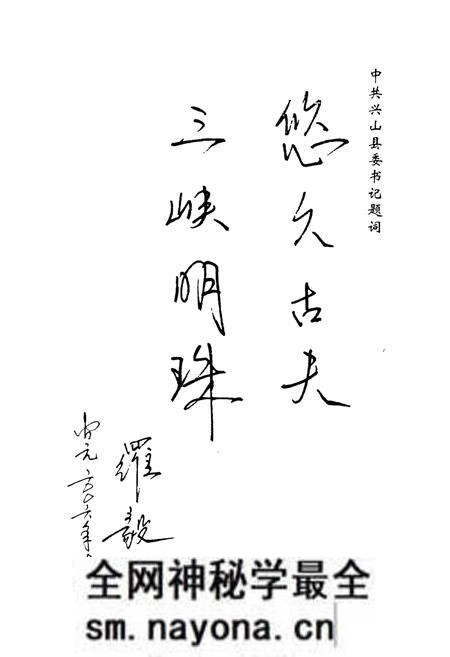 中共兴山县委书记题词
悠久古夫
三峡明珠
罗毅
二〇〇六年
全网神秘学最全
sm.nayona.cn